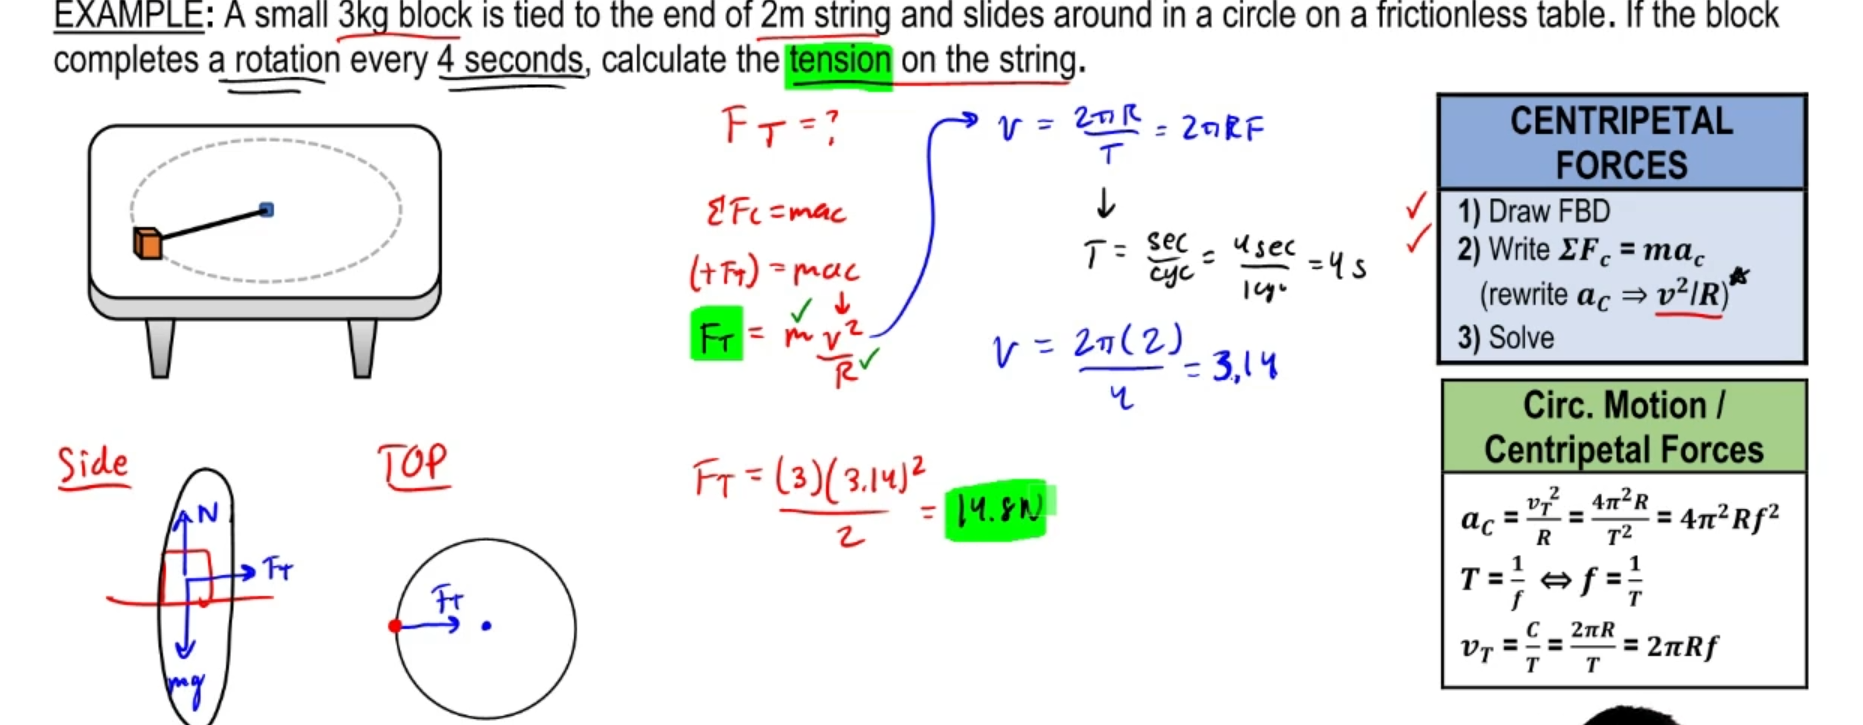 EXAMPLE: A small 3kg block is tied to the end of 2m string and slides around in a circle on a frictionless table. If the block
completes a rotation every 4 seconds, calculate the tension on the string.
F_T = ?
ΣFc = mac
(+F_T) = mac
F_T = m v²/R
v = 2πR/T = 2πRF
↓
T = sec/cyc = 4 sec/1 cyc = 4s
v = 2π(2)/4 = 3.14
F_T = (3)(3.14)²/2 = 14.8N
Side
N
F_T
mg
TOP
F_T
CENTRIPETAL
FORCES
1) Draw FBD
2) Write ΣF_c = ma_c
(rewrite a_C ⇒ v²/R)*
3) Solve
Circ. Motion /
Centripetal Forces
a_C = v_T²/R = 4π²R/T² = 4π²Rf²
T = 1/f ⇔ f = 1/T
v_T = C/T = 2πR/T = 2πRf